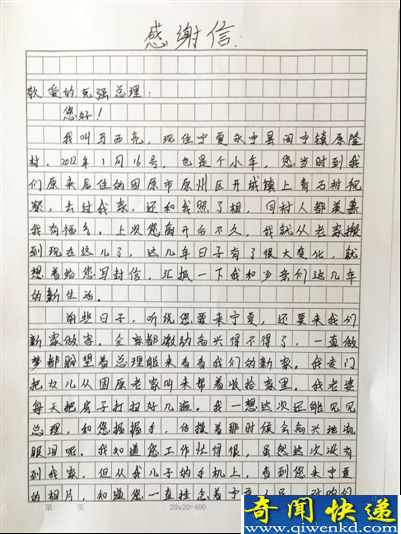 感谢信：
敬爱的克强总理：
您好！
我叫马西亮，现住宁夏永宁县闽宁镇原隆
村。2012年1月16号，也是个小年，您当时到我
们原来居住的固原市原州区开城镇上青石村视
察，去过我家，还和我照了相，同村人都羡慕
我有福气。上次您离开后不久，我就从老家搬
到现在这儿了，这几年日子有了很大变化，就
想着给您写封信，汇报一下我和乡亲们这几年
的新生活。
前些日子，听说您要来宁夏，还要来我们
新家做客，全家都激动高兴得不得了，一直做
梦都盼望着总理能来看看我们的新家。我专门
把女儿从固原老家叫来帮着收拾家里。我老婆
每天把房子打扫好几遍。我一想这次还能见见
总理，和您握握手，估摸着那时候会高兴地流
眼泪呢。我知道您工作忙得很，虽然这次没有
到我家，但从我儿子的手机上，看到您来宁夏
的相片，知道您一直挂念着宁夏人民，对咱们
第 页 20×20=400
奇闻快递
www.qiwenkd.com